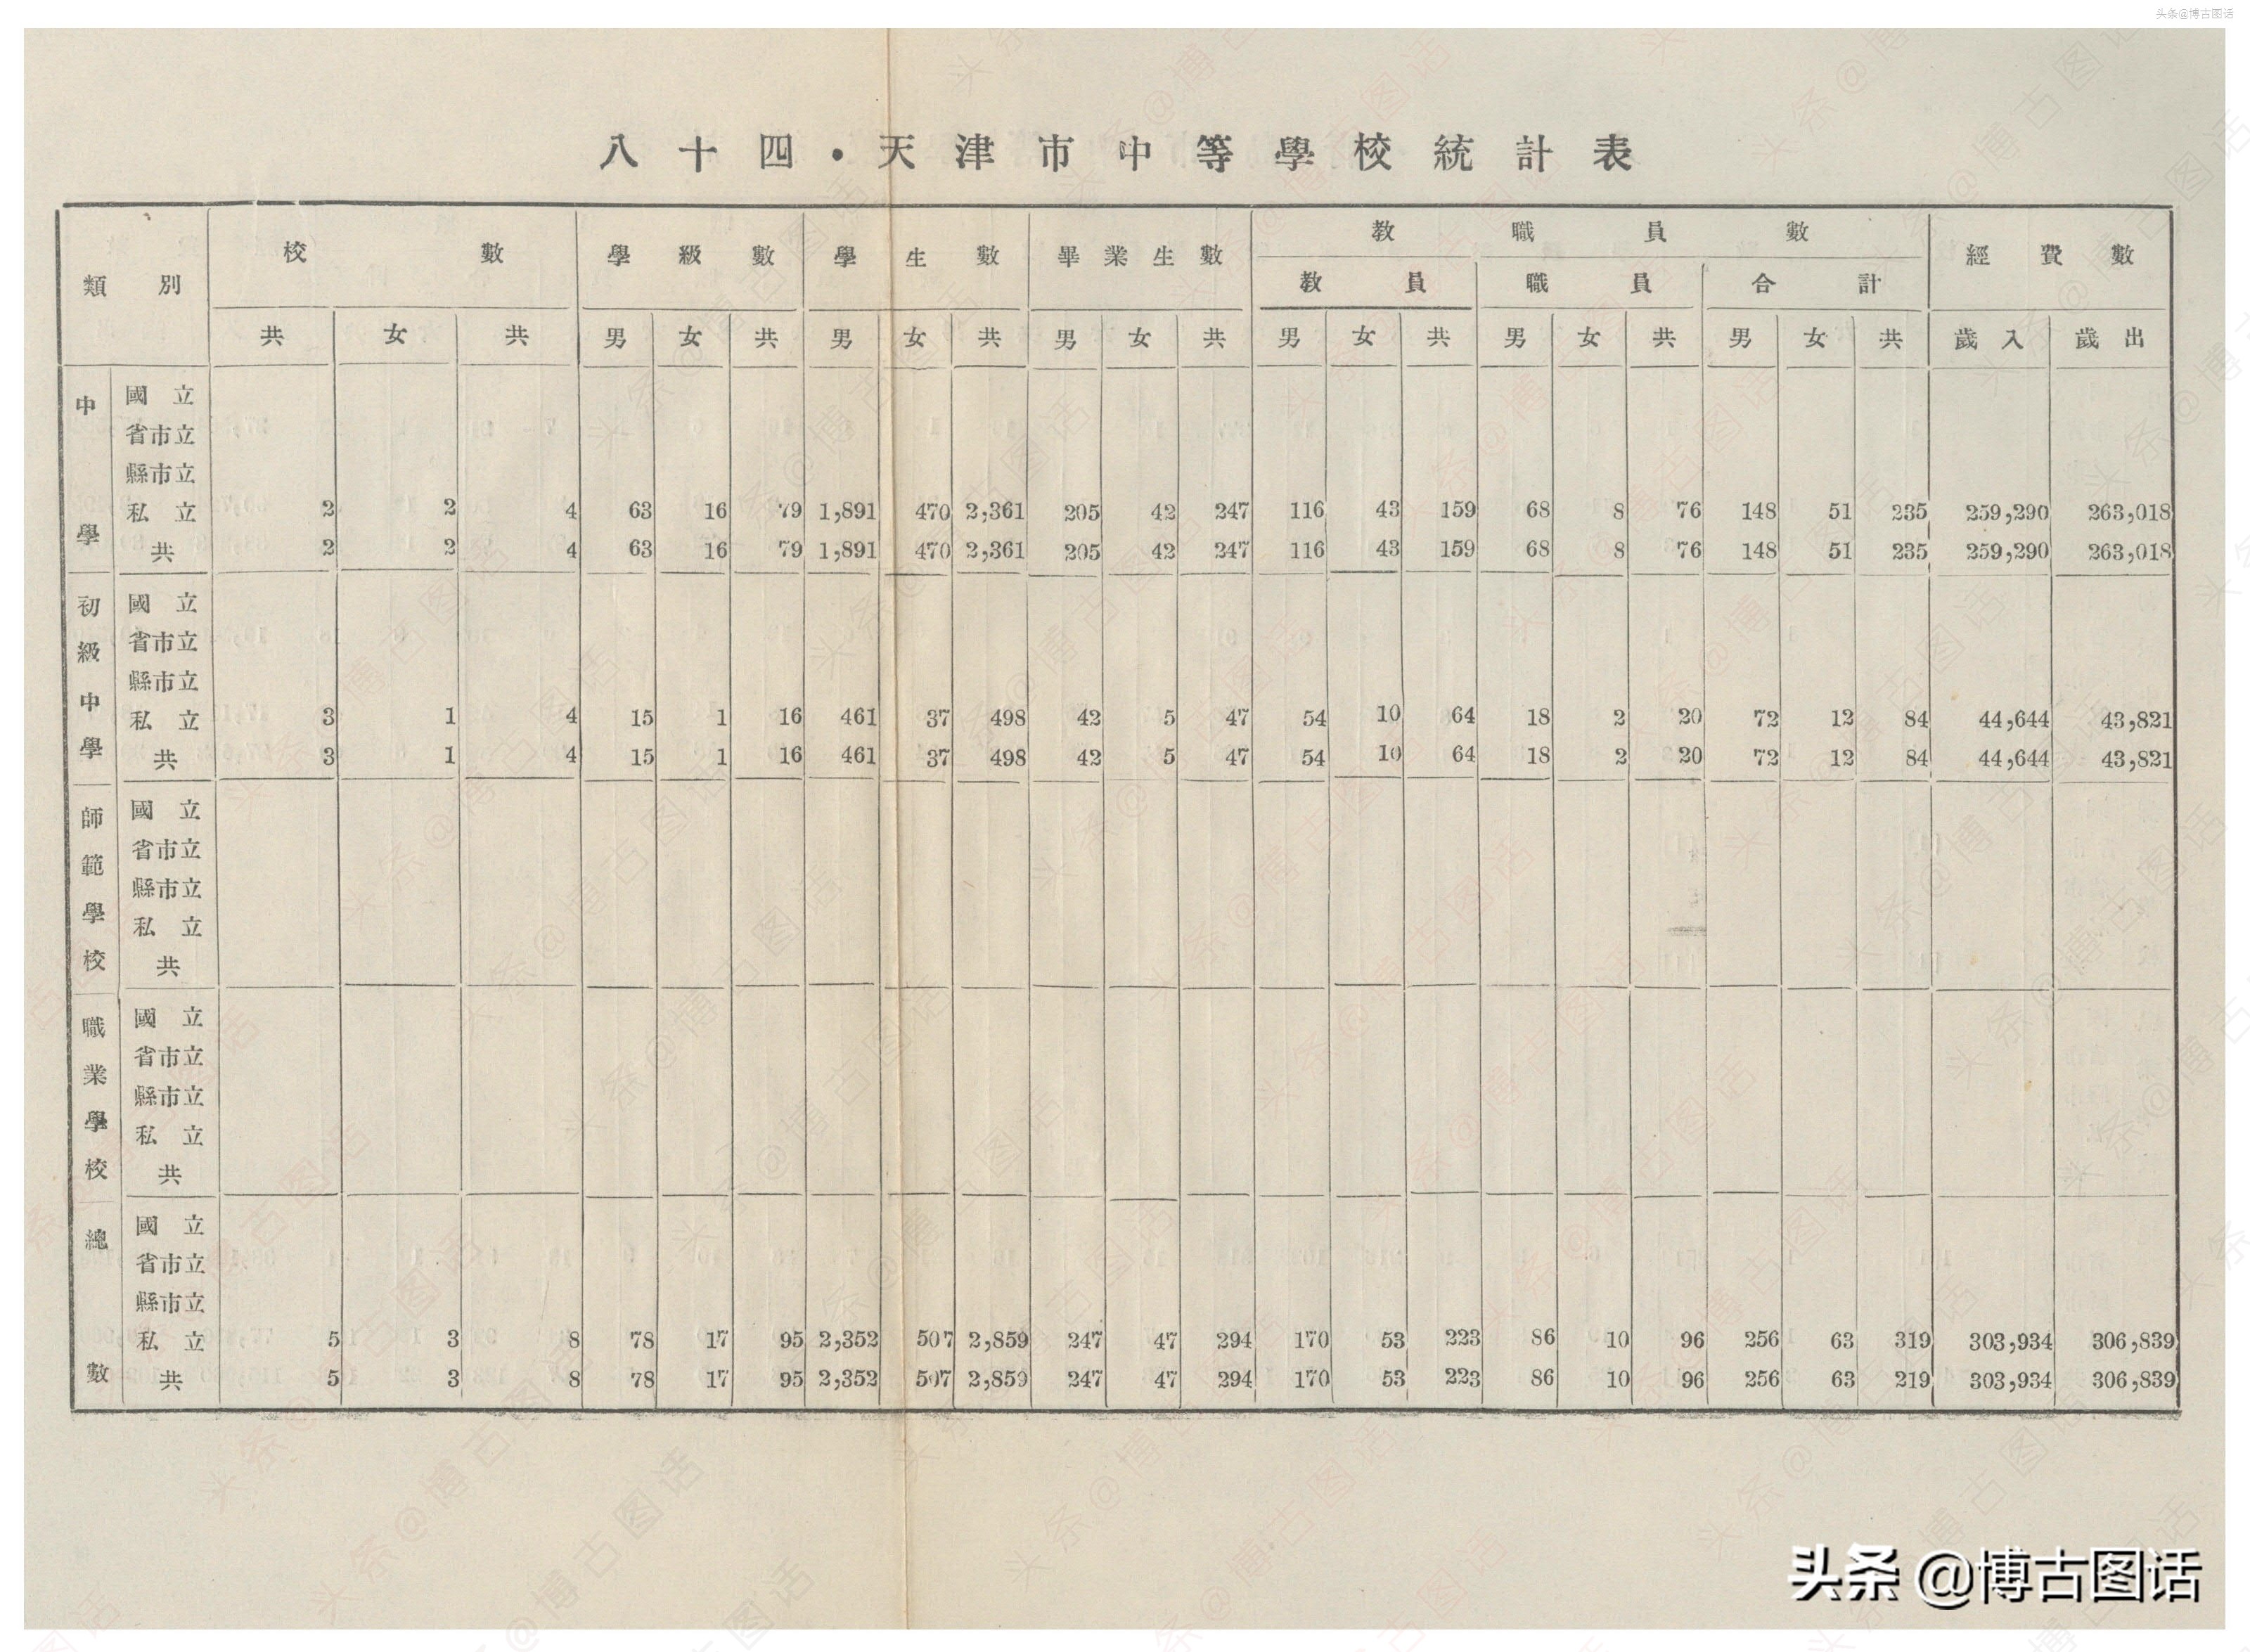 头条@博古图话
八十四·天津市中等學校統計表
類別 校數 學級數 學生數 畢業生數 教職員數 經費數
教員 職員 合計
共 女 共 男 女 共 男 女 共 男 女 共 男 女 共 男 女 共 男 女 共 歲入 歲出
中學
國立
省市立
縣市立
私立 2 2 4 63 16 79 1,891 470 2,361 205 42 247 116 43 159 68 8 76 148 51 235 259,290 263,018
共 2 2 4 63 16 79 1,891 470 2,361 205 42 247 116 43 159 68 8 76 148 51 235 259,290 263,018
初級中學
國立
省市立
縣市立
私立 3 1 4 15 1 16 461 37 498 42 5 47 54 10 64 18 2 20 72 12 84 44,644 43,821
共 3 1 4 15 1 16 461 37 498 42 5 47 54 10 64 18 2 20 72 12 84 44,644 43,821
師範學校
國立
省市立
縣市立
私立
共
職業學校
國立
省市立
縣市立
私立
共
總數
國立
省市立
縣市立
私立 5 3 8 78 17 95 2,352 507 2,859 247 47 294 170 53 223 86 10 96 256 63 319 303,934 306,839
共 5 3 8 78 17 95 2,352 507 2,859 247 47 294 170 53 223 86 10 96 256 63 219 303,934 306,839
头条@博古图话